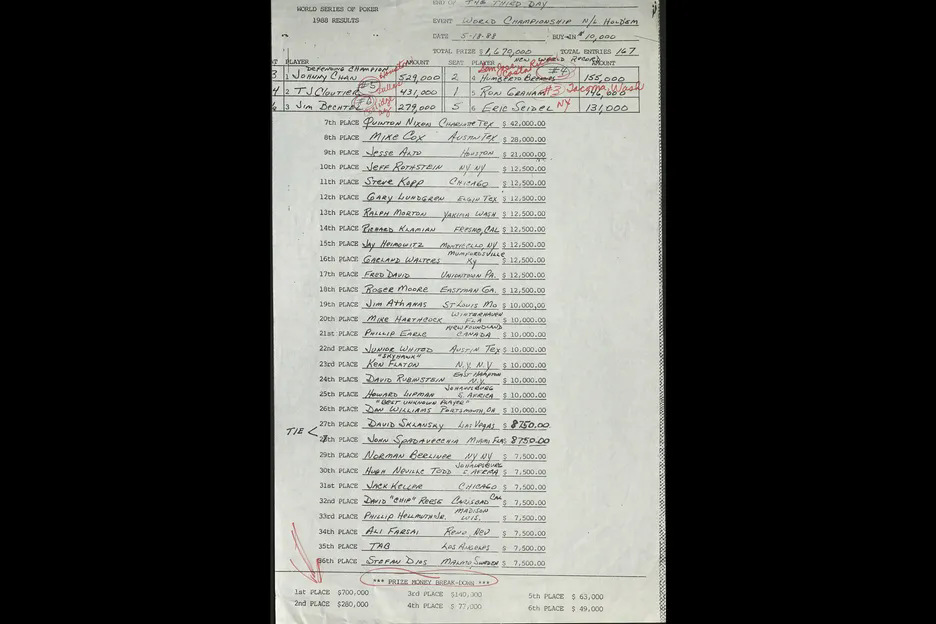 END OF THE THIRD DAY
WORLD SERIES OF POKER
1988 RESULTS
EVENT WORLD CHAMPIONSHIP N/L HOLDEM
DATE 5-18-88 BUY-IN $10,000
TOTAL PRIZE $1,670,000 TOTAL ENTRIES 167
NEW WORLD RECORD
PLAYER AMOUNT SEAT PLAYER AMOUNT
DEFENDING CHAMPION Houston #4
3 1 JOHNNY CHAN 529,000 2 4 HUMBERTO 155,000
4 2 TJ CLOUTIER #5 431,000 1 5 RON GRAHAM #3 Tacoma, Wash 146,000
3 JIM BECHTEL #6 279,000 5 6 ERIC SEIDEL NY 131,000
7th PLACE QUINTON NIXON CHARLOTTE TEX $ 42,000.00
8th PLACE MIKE COX AUSTIN TEX $ 28,000.00
9th PLACE JESSE ALTO HOUSTON $ 21,000.00
10th PLACE JEFF ROTHSTEIN NY NY $ 12,500.00
11th PLACE STEVE KOPP CHICAGO $ 12,500.00
12th PLACE GARY LUNDGREN ELGIN TEX $ 12,500.00
13th PLACE RALPH MORTON YAKIMA WASH $ 12,500.00
14th PLACE RICHARD KLAMIAN FRESNO, CAL $ 12,500.00
15th PLACE JAY HEIMOWITZ MONTICELLO, NY $ 12,500.00
16th PLACE GARLAND WALTERS MUMFORDSVILLE KY $ 12,500.00
17th PLACE FRED DAVID UNIONTOWN PA. $ 12,500.00
18th PLACE ROGER MOORE EASTMAN GA. $ 12,500.00
19th PLACE JIM ATHANAS ST LOUIS MO $ 10,000.00
20th PLACE MIKE HARTHCOCK WINTERHAVEN FLA $ 10,000.00
21st PLACE PHILLIP EARLE NEWFOUNDLAND CANADA $ 10,000.00
22nd PLACE JUNIOR WHITED AUSTIN TEX $ 10,000.00
23rd PLACE "SKYHAWK" KEN FLATON N.Y. N.Y. $ 10,000.00
24th PLACE DAVID RUBINSTEIN EAST HAMPTON N.Y. $ 10,000.00
25th PLACE HOWARD LIPMAN JOHANNESBURG S. AFRICA $ 10,000.00
26th PLACE "BEST UNKNOWN PLAYER" DAN WILLIAMS PORTSMOUTH, OH $ 10,000.00
27th PLACE DAVID SKLANSKY LAS VEGAS $ 8750.00
TIE < 27th PLACE JOHN SPADAVECCHIA MIAMI FLA $ 8750.00
29th PLACE NORMAN BERLINER NY NY $ 7,500.00
30th PLACE HUGH NEVILLE TODD JOHANNESBURG S. AFRICA $ 7,500.00
31st PLACE JACK KELLER CHICAGO $ 7,500.00
32nd PLACE DAVID "CHIP" REESE CARLSBAD CAL $ 7,500.00
33rd PLACE PHILLIP HELLMUTH JR. MADISON WIS. $ 7,500.00
34th PLACE ALI FARSAI RENO, NEV $ 7,500.00
35th PLACE TAB LOS ANGELES $ 7,500.00
36th PLACE STEFAN DIOS MALMO, SWEDEN $ 7,500.00
*** PRIZE MONEY BREAK-DOWN ***
1st PLACE $700,000 3rd PLACE $140,000 5th PLACE $ 63,000
2nd PLACE $280,000 4th PLACE $ 77,000 6th PLACE $ 49,000